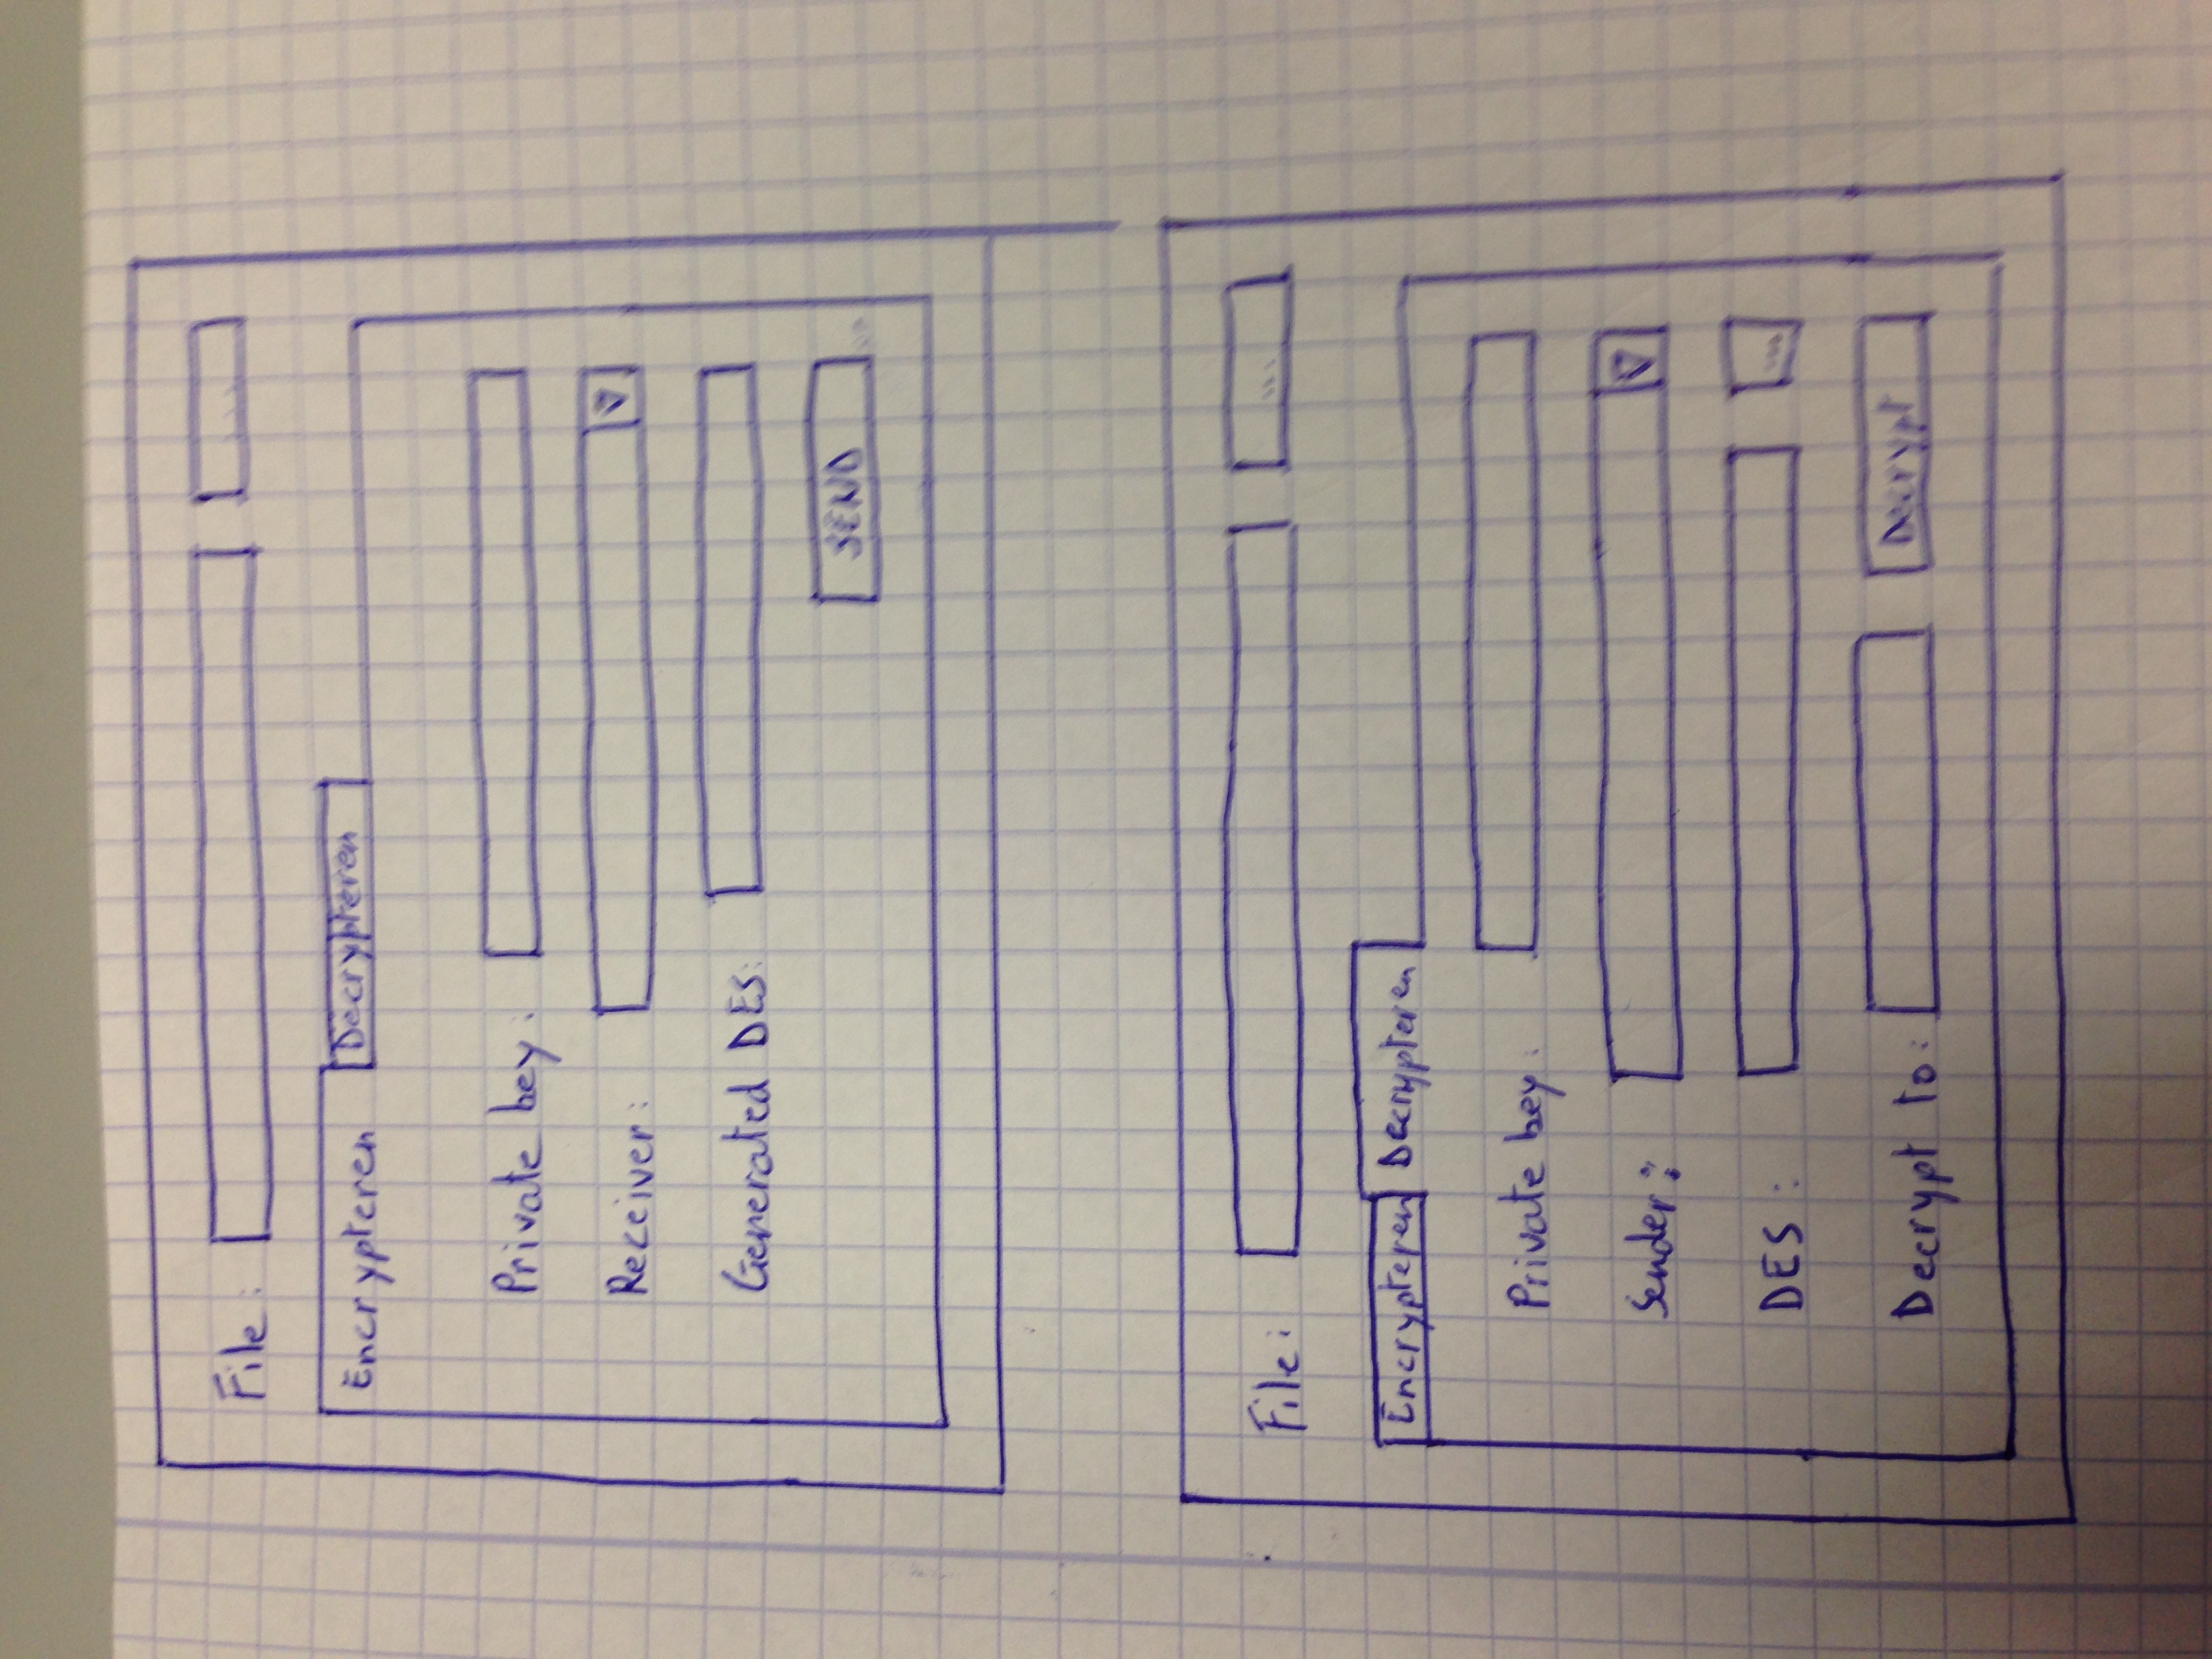 File: ...
Encrypteren Decrypteren
Private key:
Receiver:
Generated DES:
SEND
File: ...
Encrypteren Decrypteren
Private key:
Sender:
DES: ...
Decrypt to: Decrypt